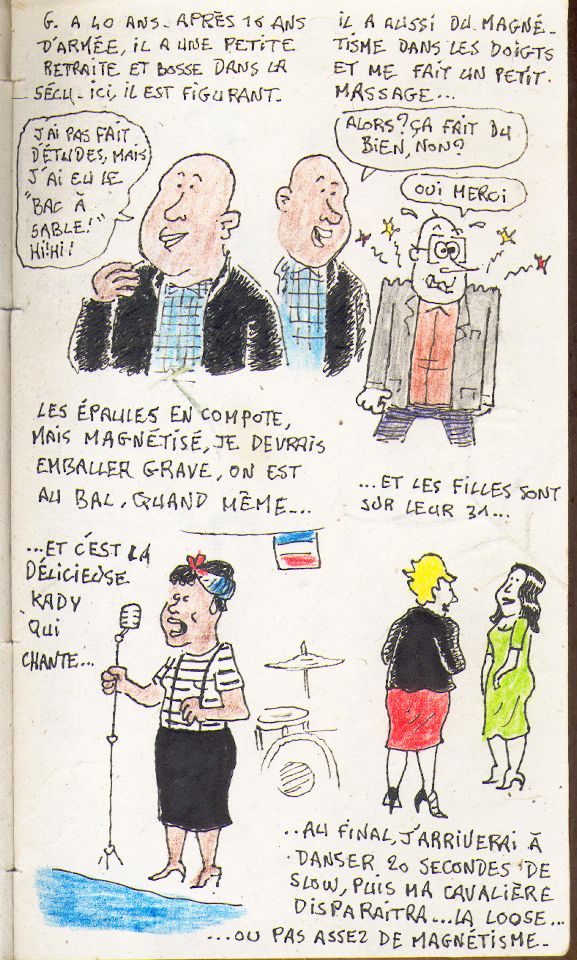 G. A 40 ANS. APRÈS 16 ANS
D'ARMÉE, IL A UNE PETITE
RETRAITE ET BOSSE DANS LA
SÉCU. ICI, IL EST FIGURANT.
IL A AUSSI DU MAGNÉ-
TISME DANS LES DOIGTS
ET ME FAIT UN PETIT
MASSAGE...
J'AI PAS FAIT
D'ÉTUDES, MAIS
J'AI EU LE
"BAC À
SABLE!"
HI!HI!
ALORS? ÇA FAIT DU
BIEN, NON?
OUI MERCI
LES ÉPAULES EN COMPOTE,
MAIS MAGNÉTISÉ, JE DEVRAIS
EMBALLER GRAVE, ON EST
AU BAL, QUAND MÊME...
...ET LES FILLES SONT
SUR LEUR 31...
...ET C'EST LA
DÉLICIEUSE
KADY
QUI
CHANTE...
..AU FINAL, J'ARRIVERAI À
DANSER 20 SECONDES DE
SLOW, PUIS MA CAVALIÈRE
DISPARAITRA...LA LOOSE...
...OU PAS ASSEZ DE MAGNÉTISME.